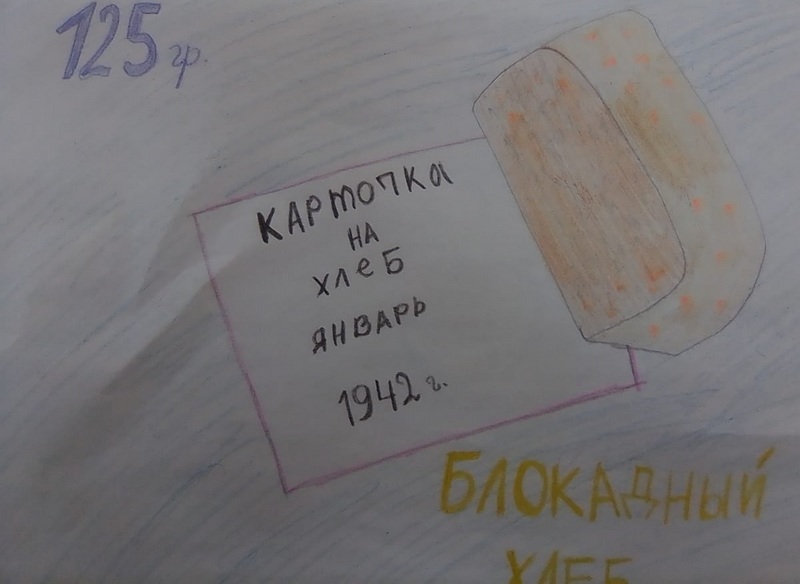 125 гр.
КАРТОЧКА
НА
ХЛЕБ
ЯНВАРЬ
1942 г.
БЛОКАДНЫЙ
ХЛЕБ